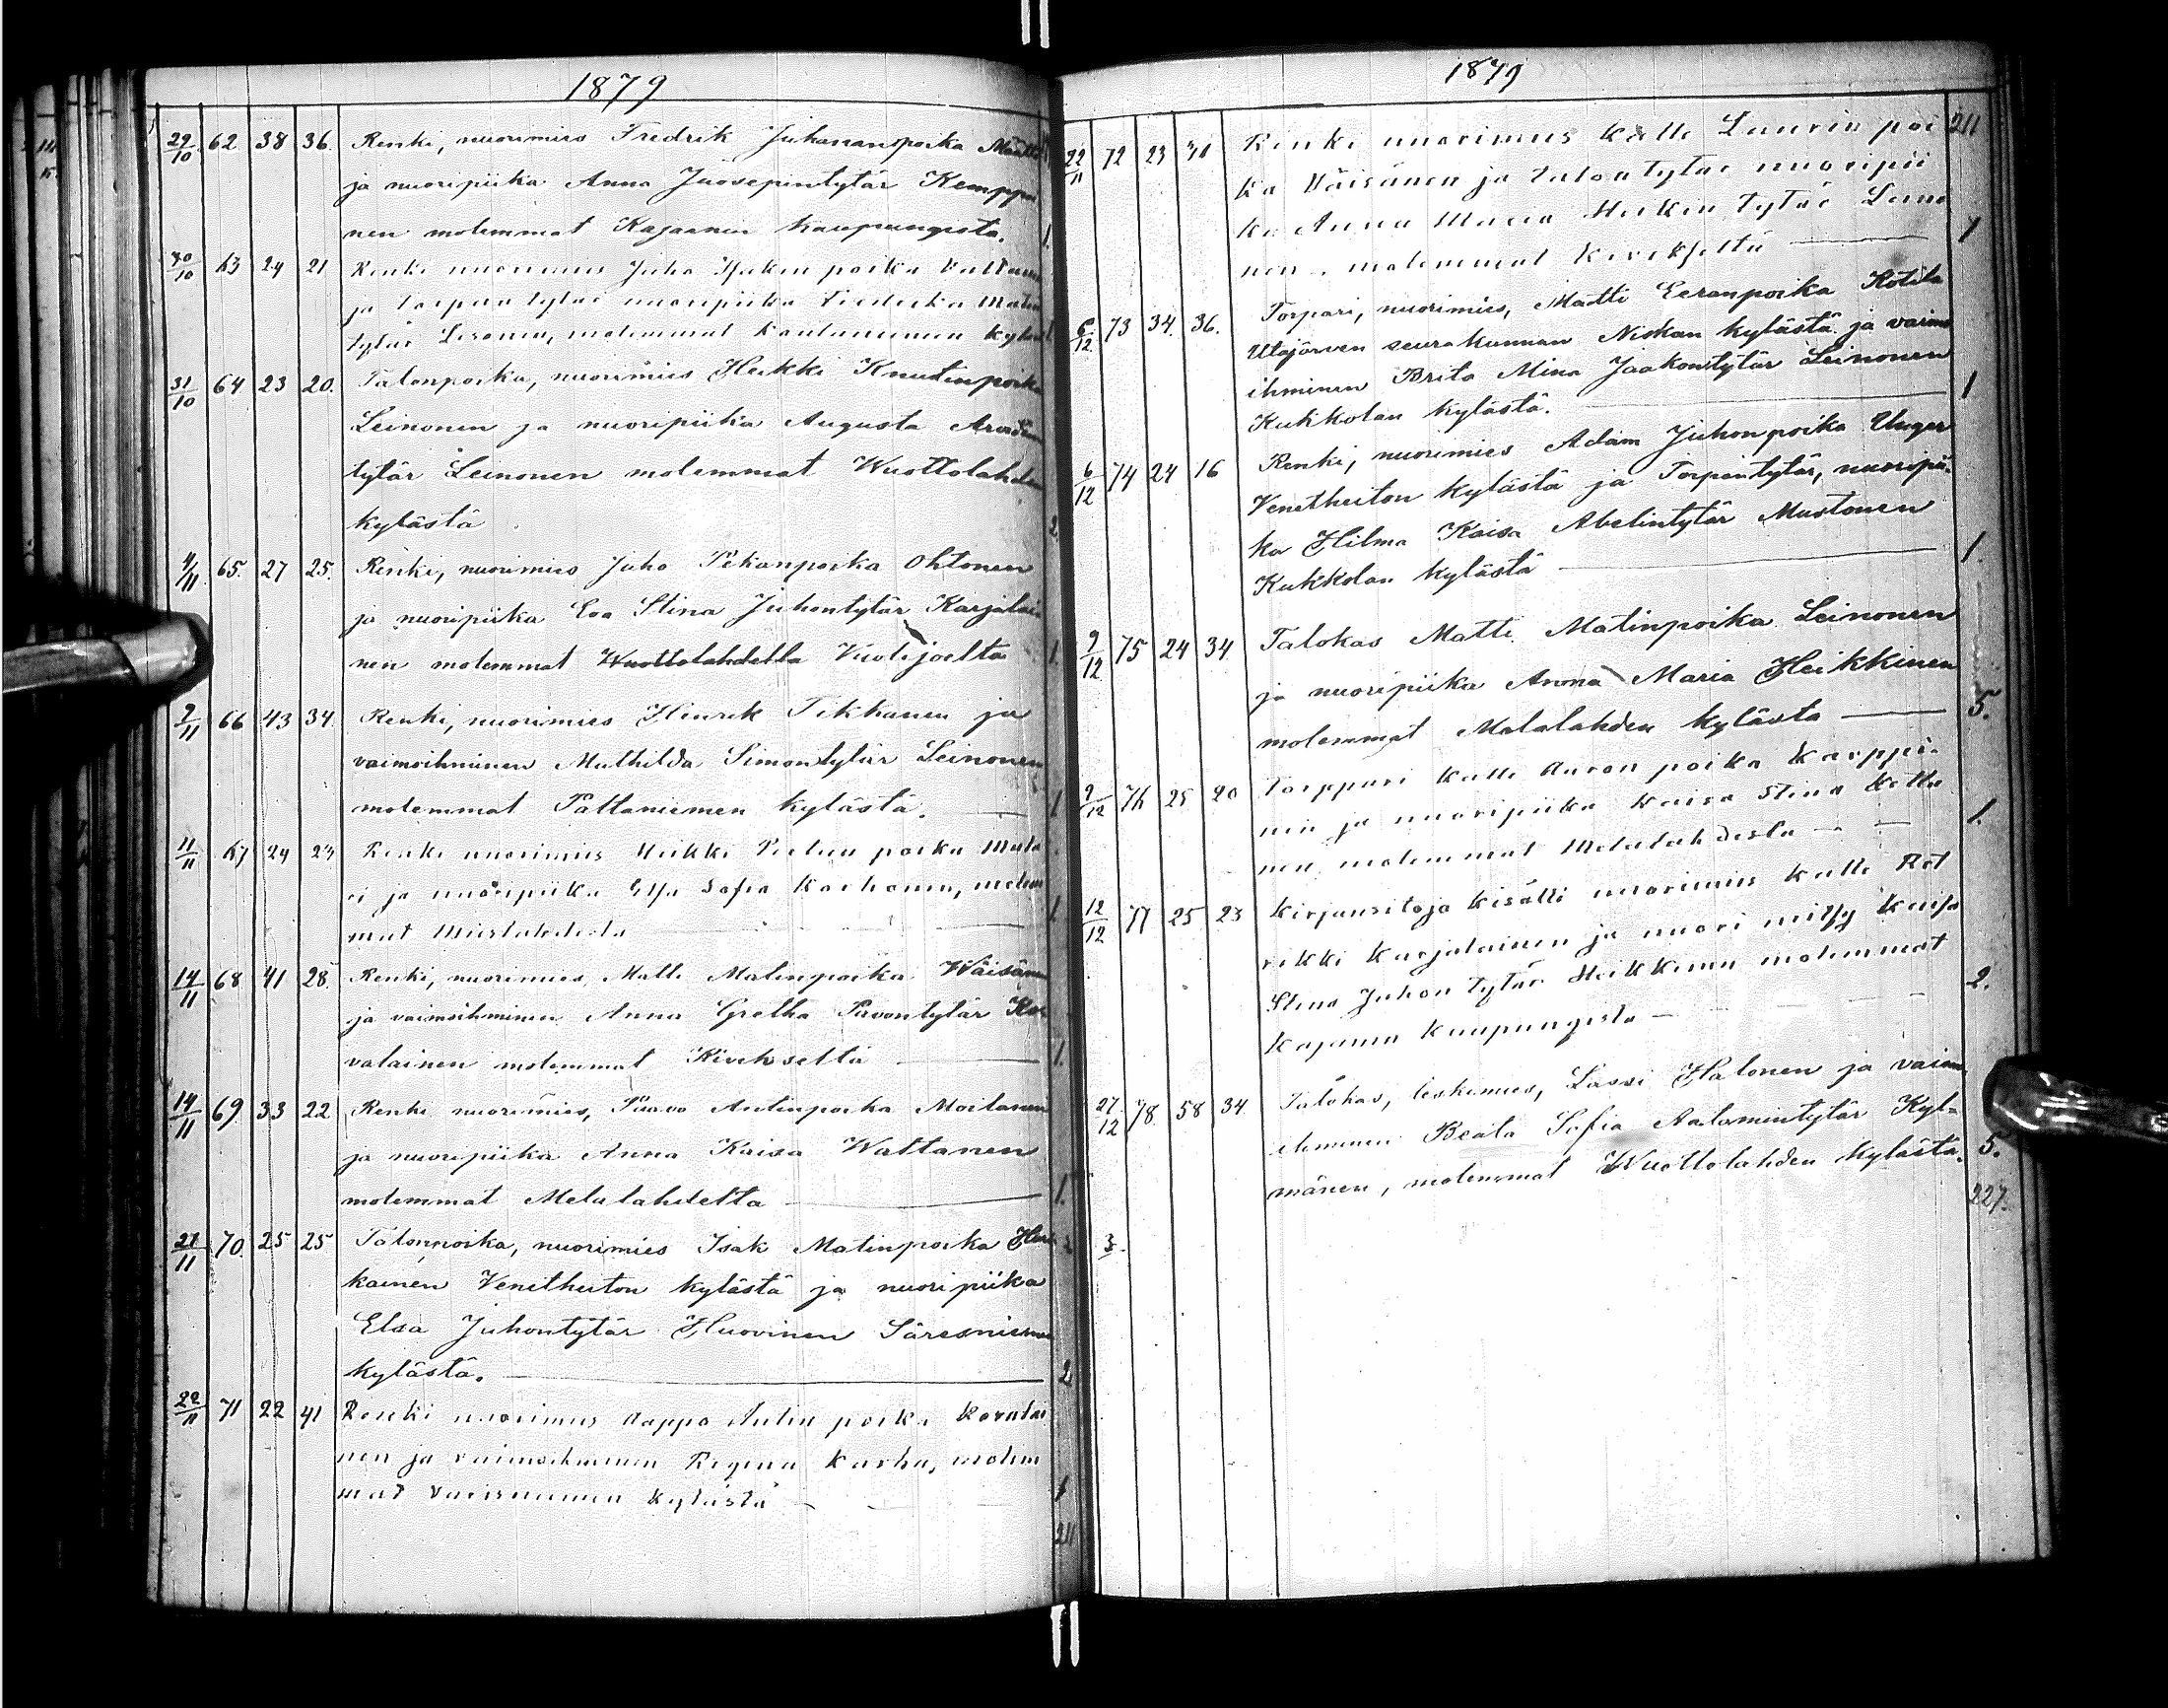 1879
29/10 62 38 36. Renki, nuorimies Fredrik Juhonanpoika Määttä
ja nuoripiika Anna Juosepintytär Kemppai
nen molemmat Kajaanin kaupungista. 1.
30/10 63 24 21 Renki nuorimies Juho Isakin poika
ja torpan tytär nuoripiika Fredrika Matin
tytär molemmat kylästä
31/10 64 23 20. Talonpoika, nuorimies Heikki Knutinpoika
Leinonen ja nuoripiika Augusta
tytär Leinonen molemmat Wuottolahden
kylästä 2.
4/11 65. 27 25. Renki, nuorimies Juho Pekanpoika Ohtonen
ja nuoripiika Eva Stina Juhontytär Karjalai
nen molemmat Wuottolahdella Vuolijoelta 1.
7/11 66 43 34. Renki, nuorimies Henrik Tikkanen ja
vaimoihminen Mathilda Simontytär Leinonen
molemmat Paltaniemen kylästä. 1
11/11 67 24 23 Renki nuorimies Heikki Pietun poika
ri ja nuoripiika Sofia Korhonen, molem
mat 1.
14/11 68 41 28. Renki, nuorimies, Matti Matinpoika Wäisänen
ja vaimoihminen Anna Gretha Paavontytär Ko
valainen molemmat Kivekseltä 1.
14/11 69. 33 22 Renki nuorimies, Paavo Antinpoika Moilanen
ja nuoripiika Anna Kaisa Wattanen
molemmat Melalahdelta 1.
21/11 70. 25 25 Talonpoika, nuorimies Isak Matinpoika
kainen Venetheiton kylästä ja nuoripiika
Elsa Juhontytär Huovinen Säresniemen
kylästä. 2
22/11 71 22 41 Renki nuorimies Aappo Antin poika Kovalai
nen ja vaimoihminen Regina Karhu, molem
mat kylästä 1
211
1879
22/11 72 23 31 Renki nuorimies Kalle Laurin poi 211
ka Väisänen ja talontytär nuoripii
ka Anna Maria Heikin tytär Leino
nen molemmat Kivekseltä 1
6/12. 73 34. 36. Torpari, nuorimies, Matti Eeranpoika Kotila
Utajärven seurakunnan Niskan kylästä ja vaimo
ihminen Brita Mina Jaakontytär Leinonen
Kukkolan kylästä. 1
6/12 74 24 16 Renki, nuorimies Adam Juhonpoika Unger
Venetheiton kylästä ja Torpintytär, nuoripii
ka Hilma Kaisa Abelintytär Mustonen
Kukkolan kylästä 1.
9/12 75 24 34. Talokas Matti Matinpoika Leinonen
ja nuoripiika Anna Maria Heikkinen
molemmat Melalahden kylästä 5.
9/12 76 25 20 Torppari Kalle Aaron poika Karppi
nen ja nuoripiika Kaisa Stina
nen molemmat Melalahdesta 1.
12/12 77 25 23 Kirjansitoja kisälli nuorimies Kalle
rikki Karjalainen ja nuori neitsy Kaisa
Stina Juhon tytär Heikkinen molemmat
Kajaanin kaupungista 2.
27/12 78. 58 34. Talokas, leskimies, Lassi Halonen ja vaimo
ihminen Beata Sofia Aatamintytär Kyl=
mänen, molemmat Wuottolahden kylästä. 5.
227.
3.